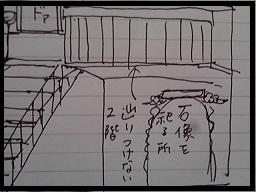 ドア
石像を
祀る所
辿りつけない
2階